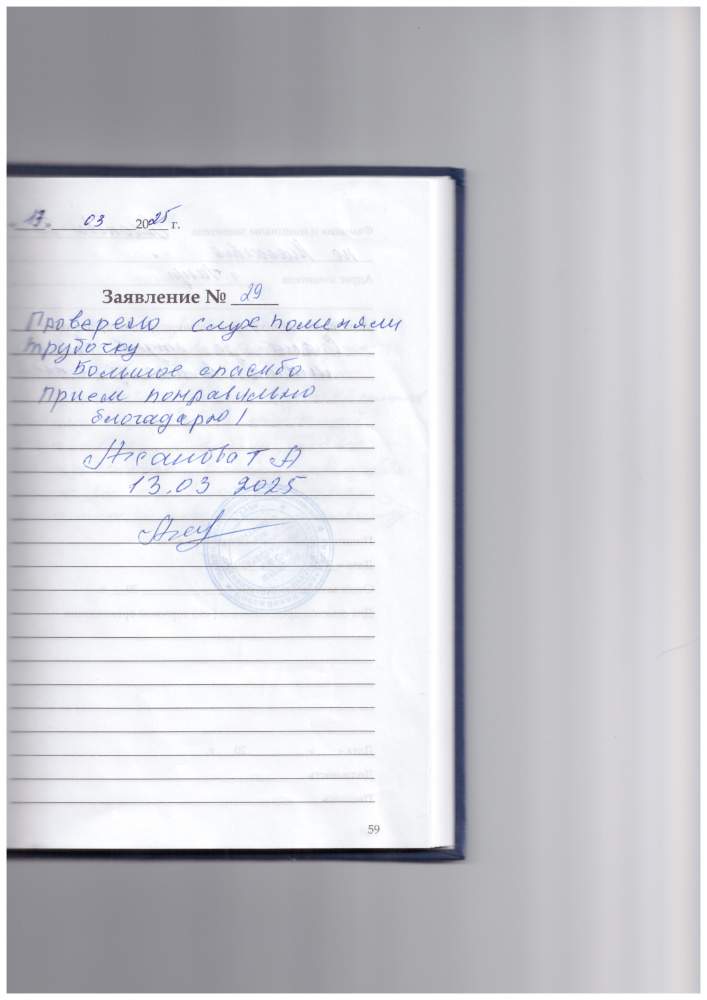 " 13 " 03 2025 г.
Заявление № 29
Проверено слух поменяли
трубочку
Большое спасибо
Прием понравильно
благадарю!
Т А
13.03 2025
59